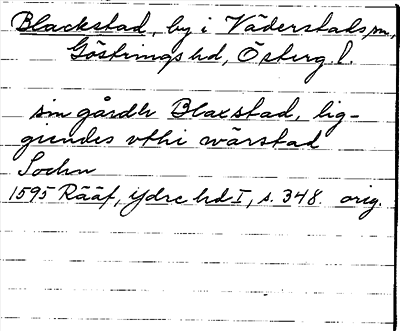 Blackstad, by i Väderstads sn.,
Göstrings hd, Österg. l.
sin gårdh Blaxstad, lig-
giendes vthi wärstad
Sochn
1595 Rääf, Ydre hd I, s. 348. orig.